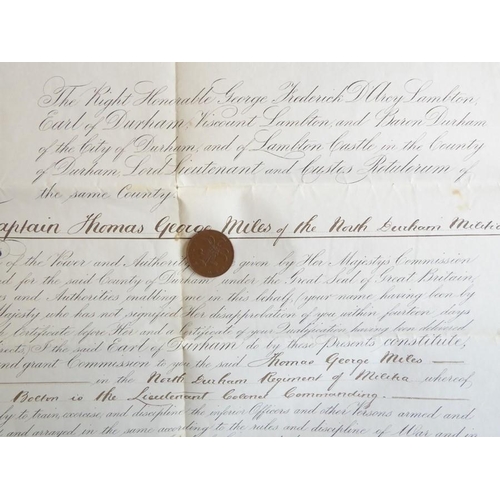 The Right Honorable George Frederick D'Arcy Lambton,
Earl of Durham, Viscount Lambton, and Baron Durham
of the City of Durham, and of Lambton Castle in the County
of Durham, Lord Lieutenant and Custos Rotulorum of
the same County.
aptain Thomas George Miles of the North Durham Militia
of the Power and Authority given by Her Majesty's Commission
d for the said County of Durham under the Great Seal of Great Britain,
es and Authorities enabling me in this behalf, (your name having been by
Majesty who has not signified Her disapprobation of you within fourteen days
h Certificate before Her and a Certificate of your Qualification having been delivered
rects, I the said Earl of Durham do by these presents constitute,
nd grant Commission to you the said Thomas George Miles
in the North Durham Regiment of Militia whereof
Becton is the Lieutenant Colonel Commanding
ly to train, exercise, and discipline the inferior Officers and other Persons armed and
and arrayed in the same according to the rules and discipline of War and in